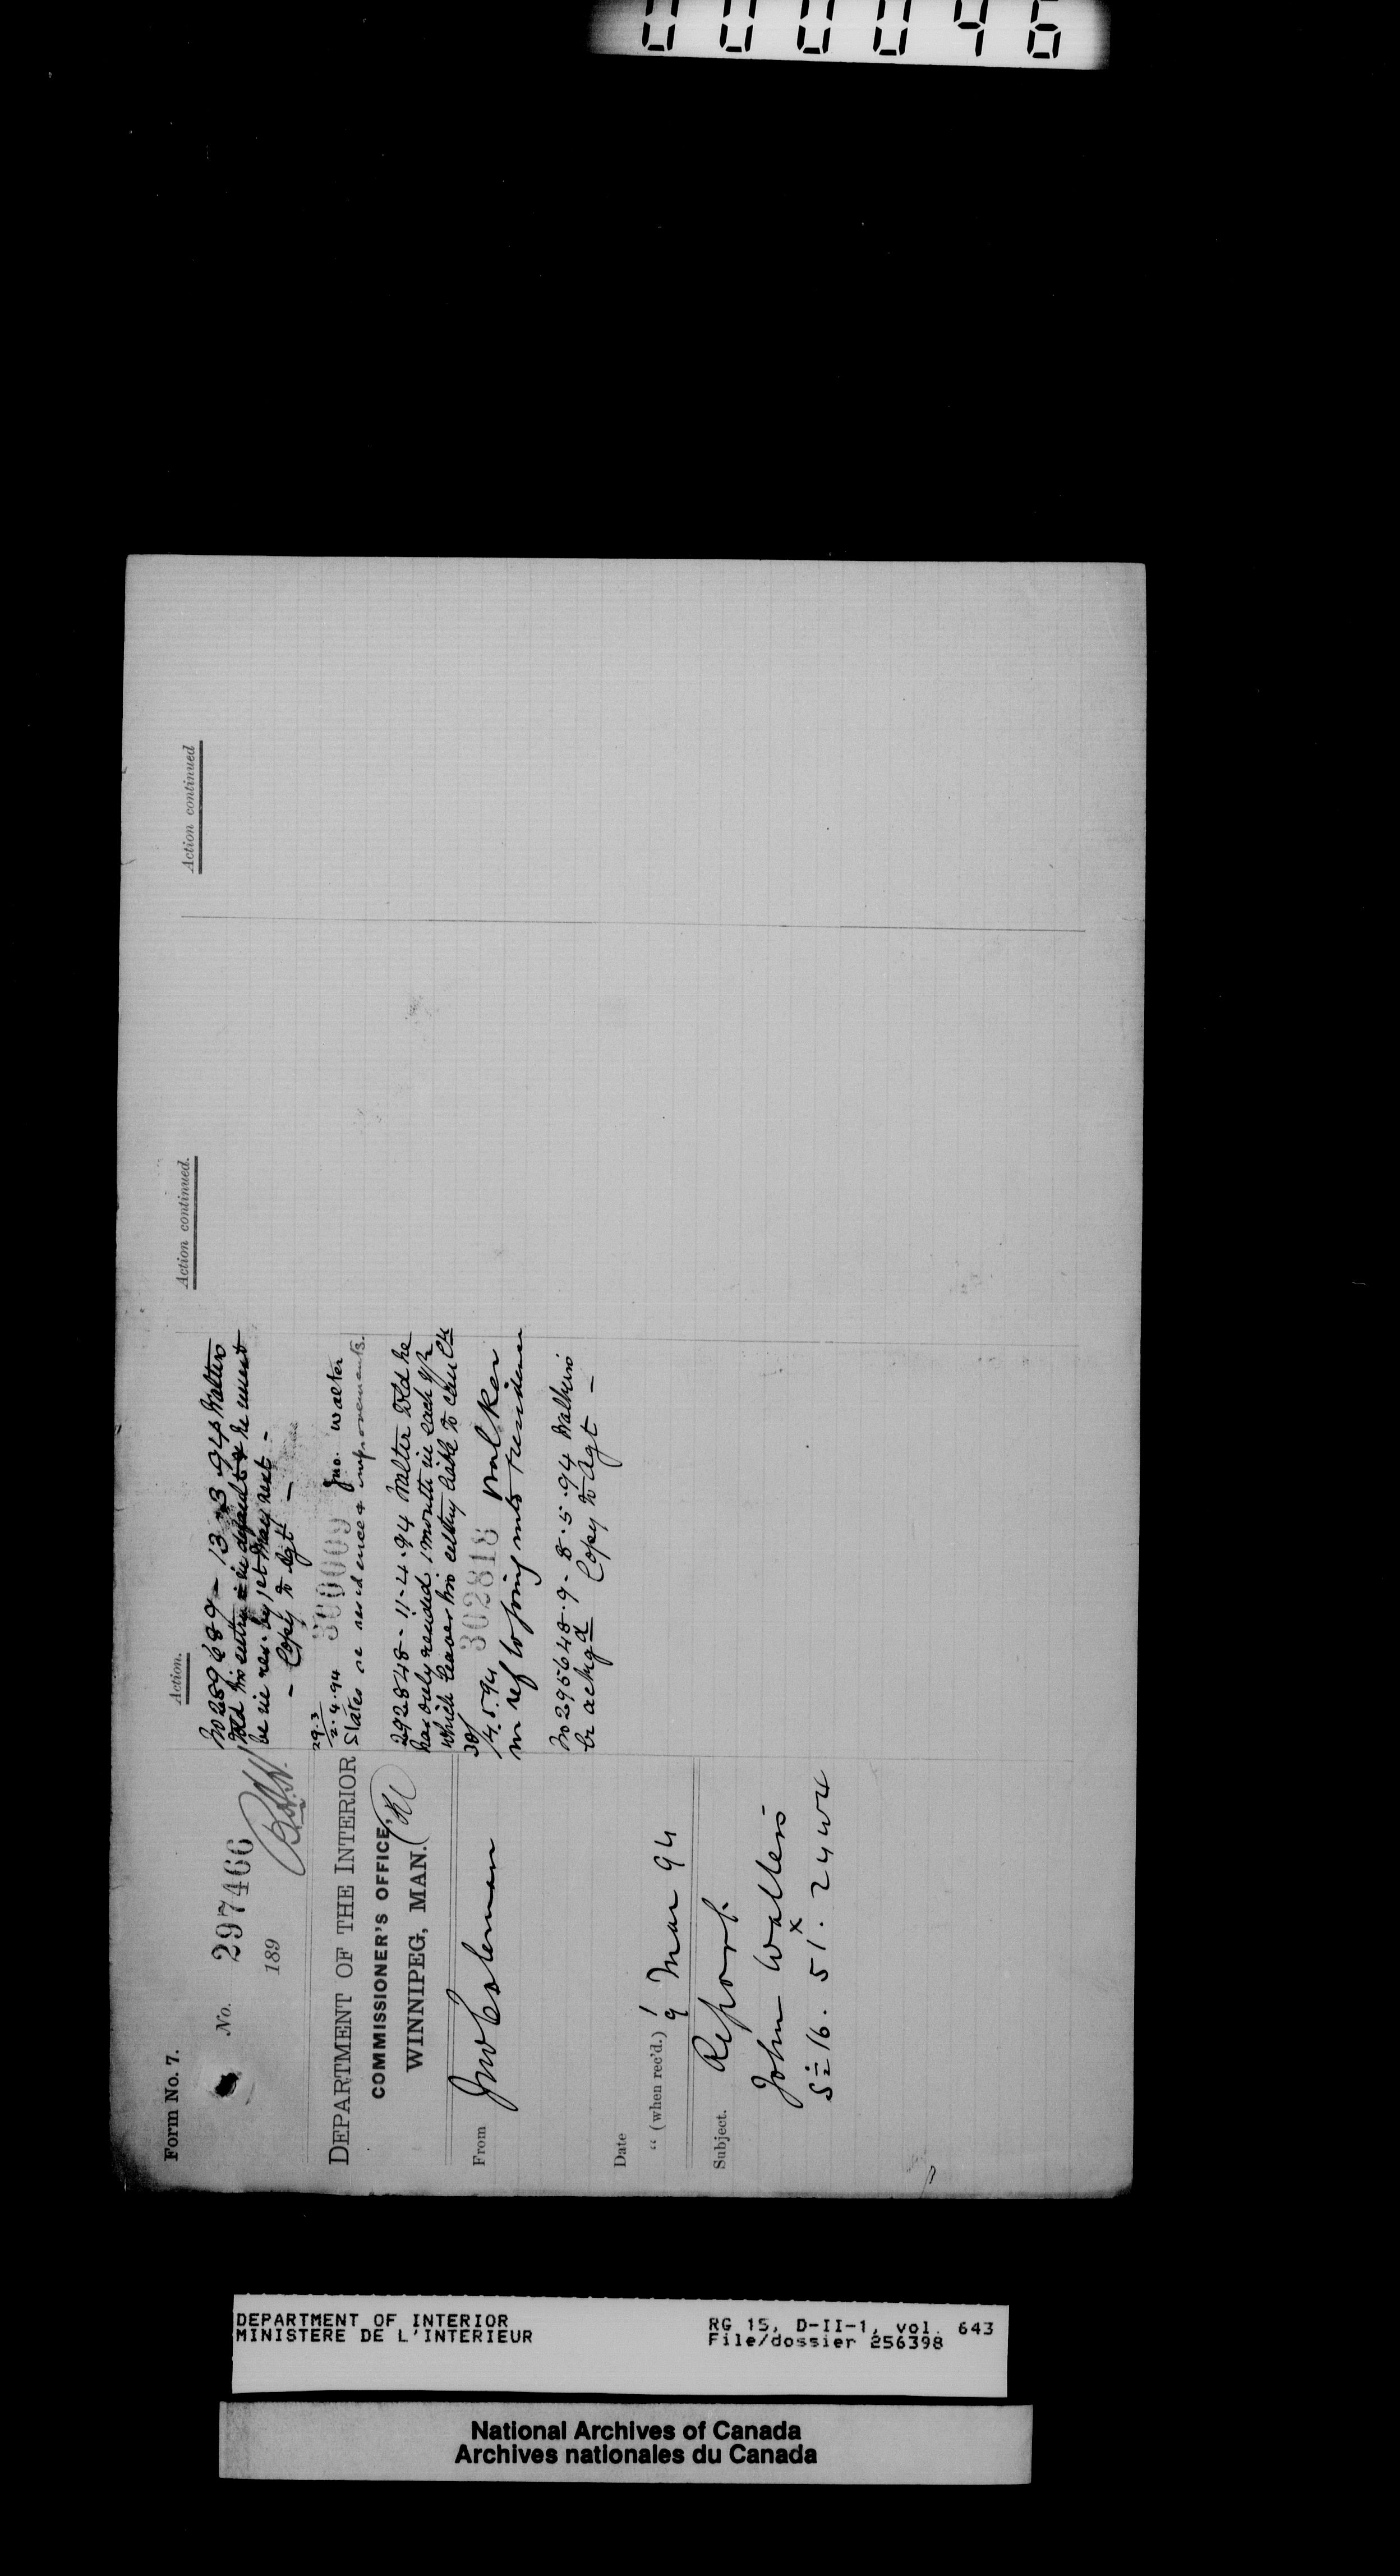 000046
Form No. 7.
No. 297466
189
DEPARTMENT OF THE INTERIOR
COMMISSIONER'S OFFICE,
WINNIPEG, MAN.
From Jno Coleman
Date
" (when rec'd.) 9 Mar 94
Subject. Report
John Walters
S½ 16. 51. 24 W4
Action.
289689 - 13-3-94 Walters
told his entry is in default & he must
be in res. by 1st May next -
- Copy to Agt -
29.3
2.4.94 300009 Jno. Walter
States re residence & improvements.
292848 - 11-4-94 Walter told he
has only resided 1 month in each yr
which leaves his entry liable to
30/4.5.94 302818 Walker
in ref to going into residence
295648.9 - 8.5.94 Walters
Copy to Agt -
Action continued.
Action continued
DEPARTMENT OF INTERIOR
MINISTERE DE L'INTERIEUR
RG 15, D-II-1, vol. 643
File/dossier 256398
National Archives of Canada
Archives nationales du Canada